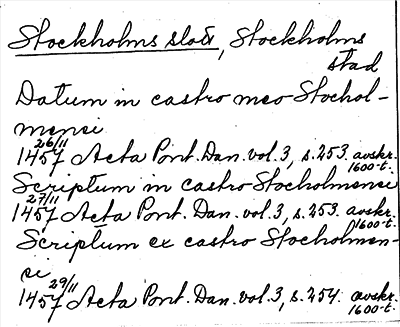 Stockholms slott, Stockholms
stad
Datum in castro meo Stochol-
mensi
26/11
1457 Acta Pont. Dan. vol. 3, s. 253. avskr.
1600-t.
Scriptum in castro Stocholmensi
27/11
1457 Acta Pont. Dan. vol. 3, s. 253. avskr.
1600-t.
Scriptum ex castro Stocholmen-
si
29/11
1457 Acta Pont. Dan. vol. 3, s. 254. avskr.
1600-t.